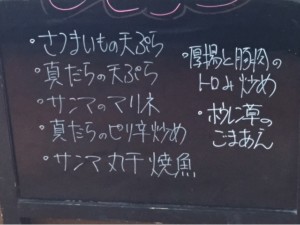 ・さつまいもの天ぷら
・真だらの天ぷら
・サンマのマリネ
・真だらのピリ辛炒め
・サンマ丸干焼魚
・厚揚と豚肉の
トロみ炒め
・ホウレン草の
ごまあえ